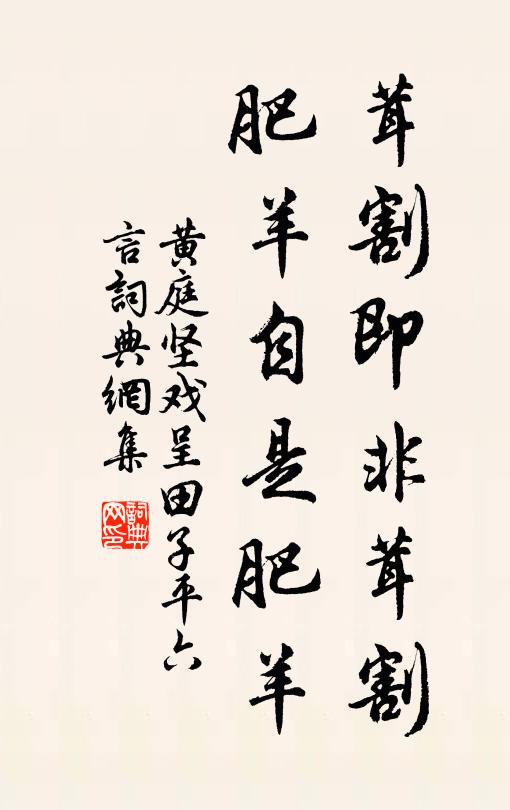 茸割即非茸割
肥羊自是肥羊
黄庭坚戏呈田子平六
言詞典網集
詞典
网印